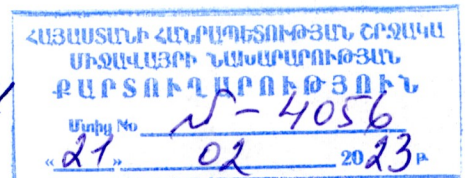 ՀԱՅԱՍՏԱՆԻ ՀԱՆՐԱՊԵՏՈՒԹՅԱՆ ՇՐՋԱԿԱ
ՄԻՋԱՎԱՅՐԻ ՆԱԽԱՐԱՐՈՒԹՅԱՆ
ՔԱՐՏՈՒՂԱՐՈՒԹՅՈՒՆ
Մտից No Մ-4056
«21» 02 2023թ